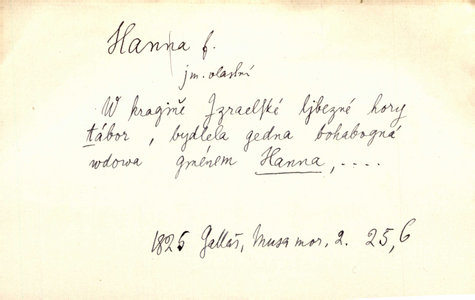 Hanna f.
jm. vlastní
W kragině Izraelské ljbezné hory
tábor, bydlela gedna bohabogná
wdowa gménem Hanna, ....
1826 Gallaš, Musa mor. 2. 25,6